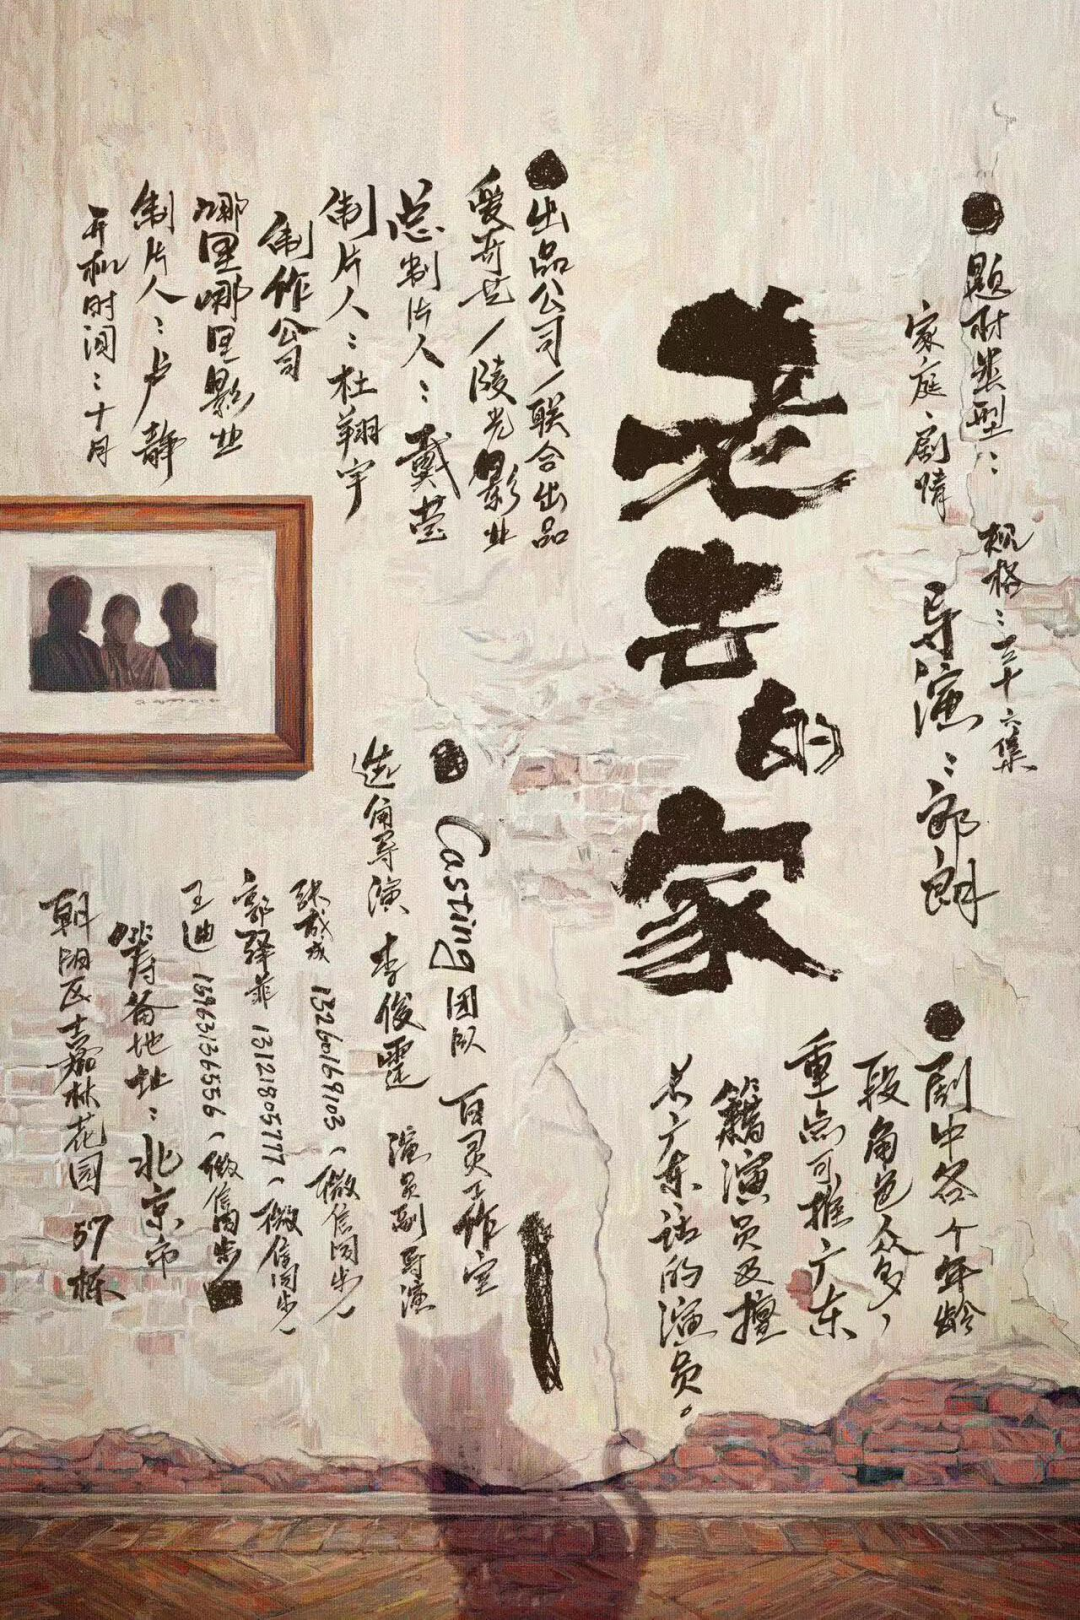 题材类型：
家庭、剧情
规格：三十六集
导演：郭朗
老去的家
出品公司/联合出品
爱奇艺/陵光影业
总制片人：戴莹
制片人：杜翔宇
制作公司
哪里哪里影业
制片人：卢静
开机时间：十月
剧中各个年龄
段角色众多，
重点可推广东
籍演员及擅
长广东话的演员。
Casting团队 百灵工作室
选角导演 李俊霆 演员副导演
张成 13260169103（微信同步）
郭驿菲 13121805777（微信同步）
王迪 13963136556（微信同步）
筹备地址：北京市
朝阳区嘉林花园57栋